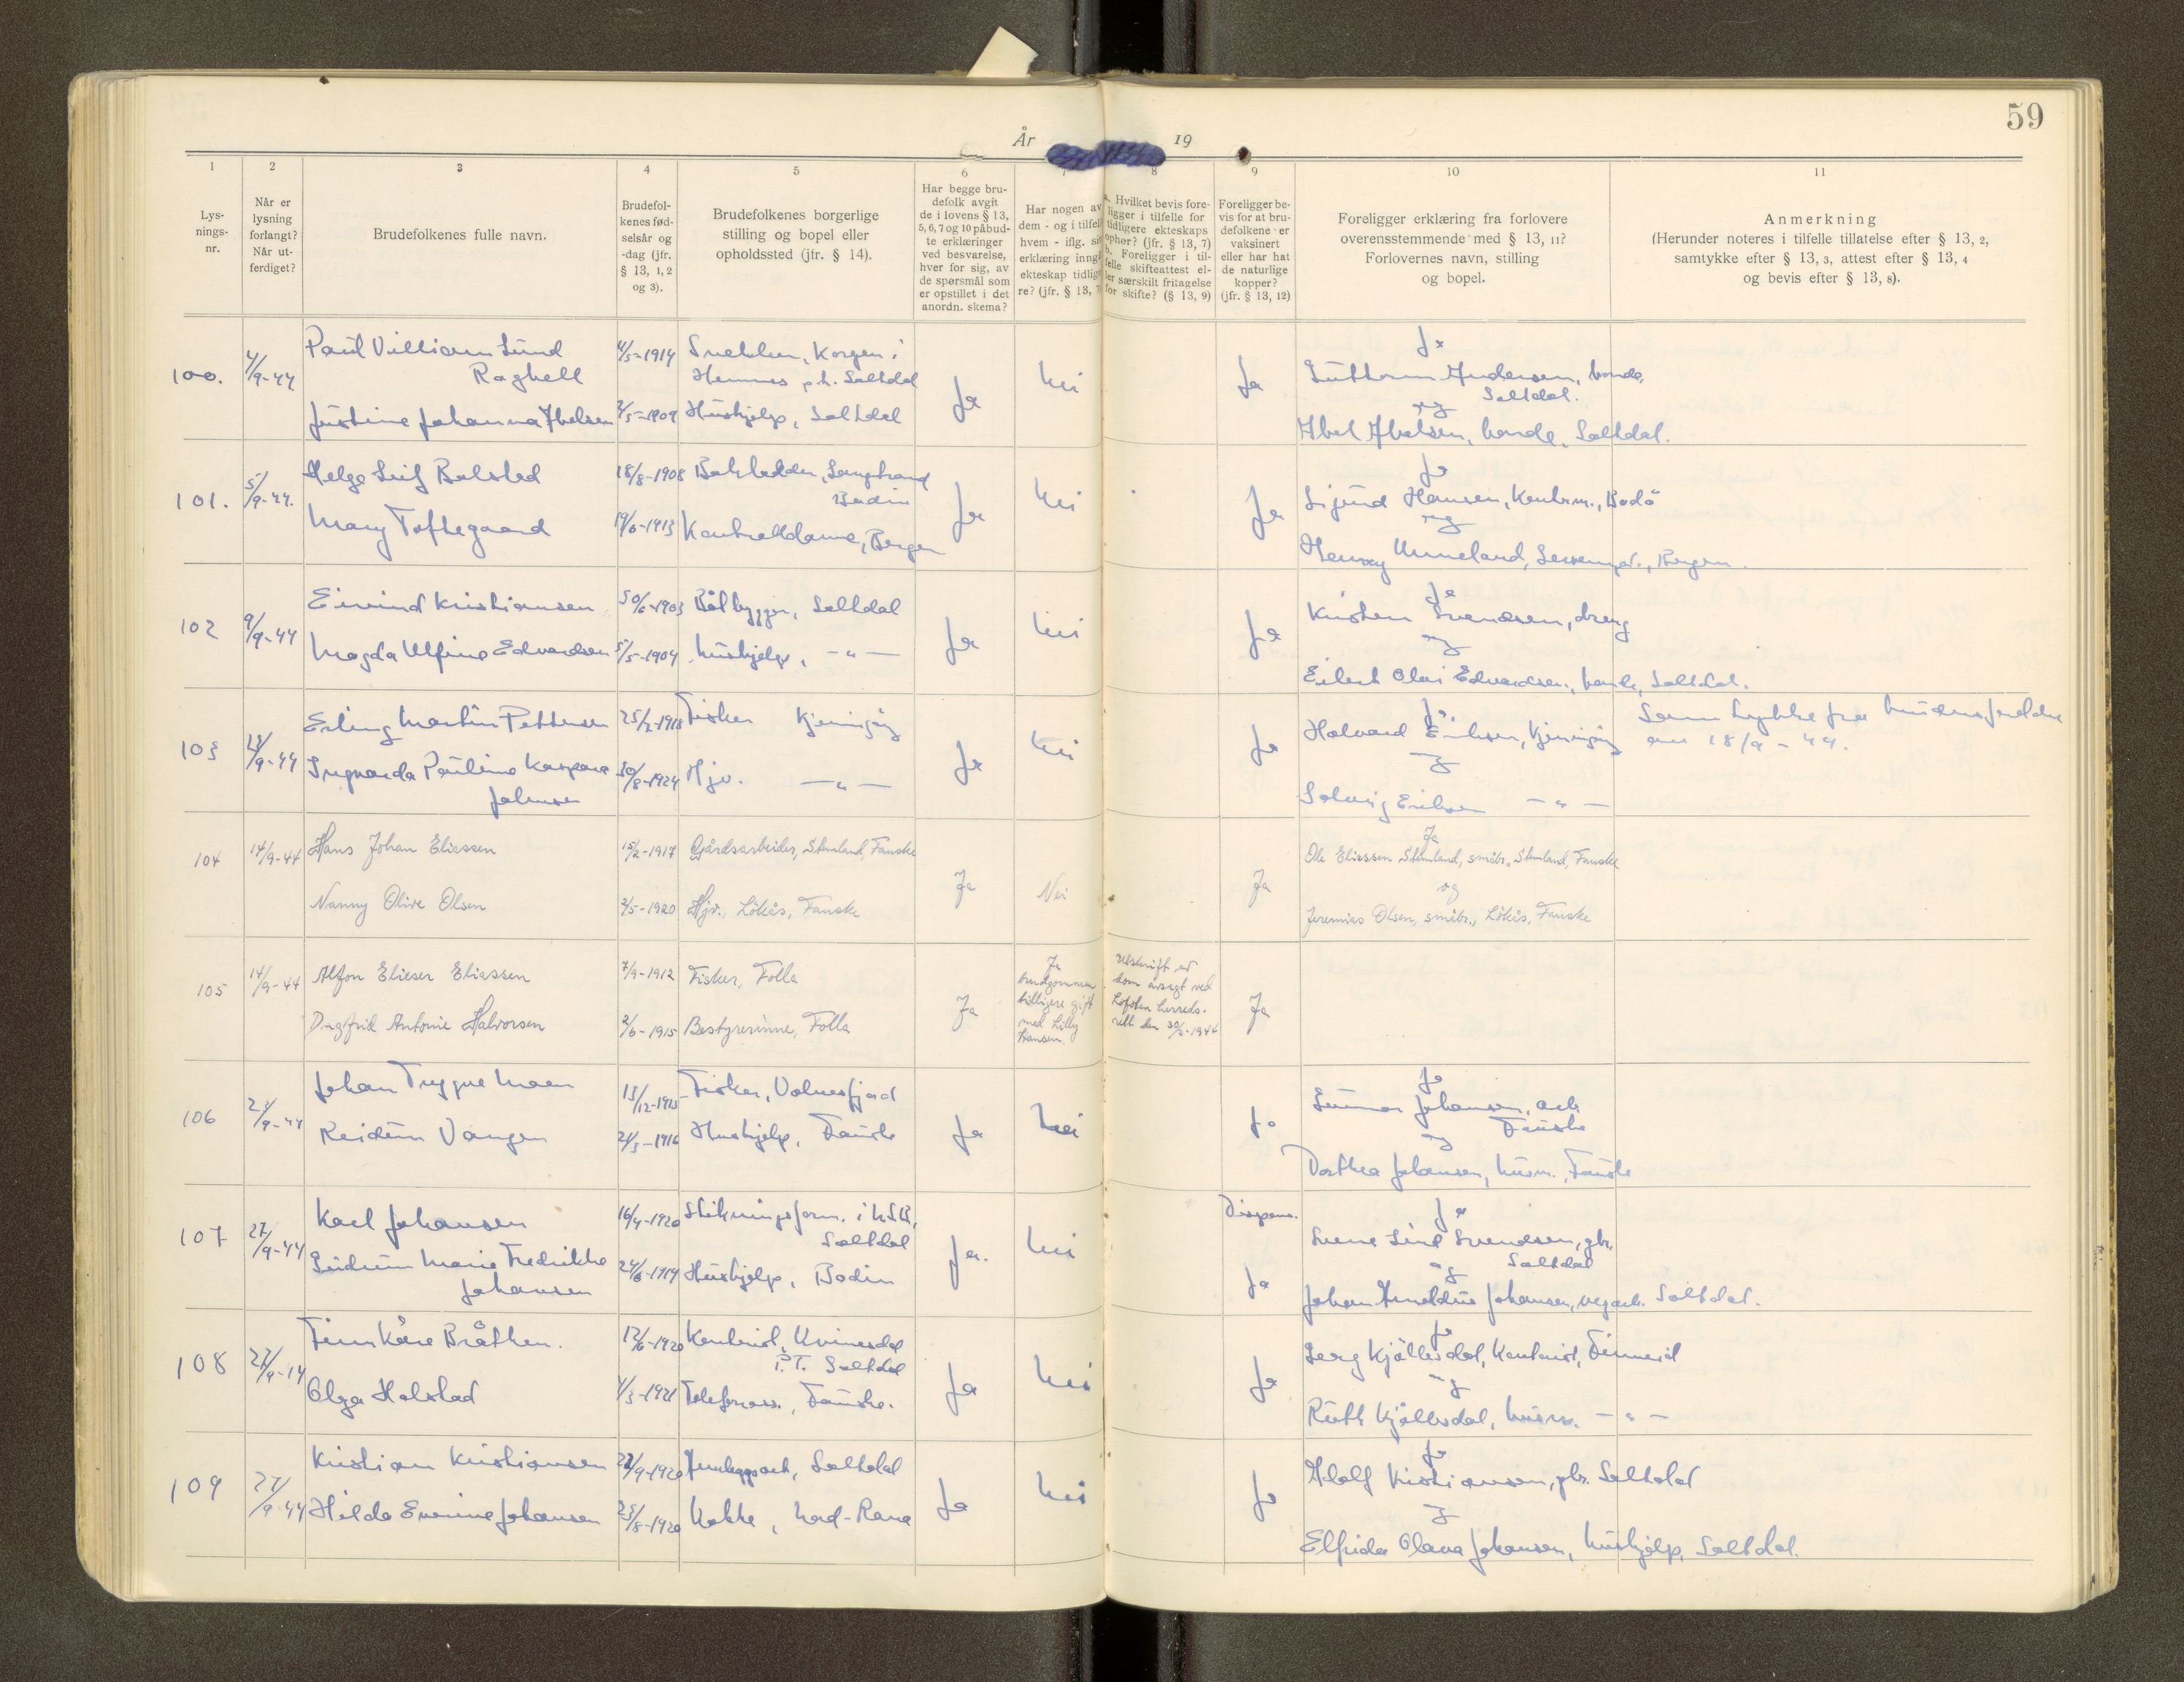 59
År 19
1 2 3 4 5 6 7 8 9 10 11
Lys-
nings-
nr.
Når er
lysning
forlangt?
Når ut-
ferdiget?
Brudefolkenes fulle navn.
Brudefol-
kenes fød-
selsår og
-dag (jfr.
§ 13, 1, 2
og 3).
Brudefolkenes borgerlige
stilling og bopel eller
opholdssted (jfr. § 14).
Har begge bru-
defolk avgit
de i lovens § 13,
5, 6, 7 og 10 påbud-
te erklæringer
ved besvarelse,
hver for sig, av
de spørsmål som
er opstillet i det
anordn. skema?
Har nogen av
dem - og i tilfel
hvem - iflg. si
erklæring inng
ekteskap tidlig
re? (jfr. § 13, 7
a. Hvilket bevis fore-
ligger i tilfelle for
tidligere ekteskaps
ophør? (jfr. § 13, 7)
b. Foreligger i til-
felle skifteattest el-
ler særskilt fritagelse
for skifte? (§ 13, 9)
Foreligger be-
vis for at bru-
defolkene er
vaksinert
eller har hat
de naturlige
kopper?
(jfr. § 13, 12)
Foreligger erklæring fra forlovere
overensstemmende med § 13, 11?
Forlovernes navn, stilling
og bopel.
Anmerkning
(Herunder noteres i tilfelle tillatelse efter § 13, 2,
samtykke efter § 13, 3, attest efter § 13, 4
og bevis efter § 13, 8).
100. 4/9-44 Paul Villiam Lund 4/5-1914 Snekker, Korgen i
Raghell Hemnes p.t. Saltdal Ja Nei Ja
Justine Johanna Abelsen 2/5-1909 Hushjelp, Saltdal
Ja
Guttorm Andersen, bonde,
Saltdal.
og
Abel Abelsen, bonde, Saltdal.
101. 5/9-44. Helge Leif Balstad 18/8-1908
Bodin Ja Nei Ja
Mary Toftegaard 19/6-1913 Kontrolldame, Bergen
Ja
Sigurd Hansen, Kontorm., Bodö
og
Henry Unneland, Bergen.
102 9/9-44 Eivind Kristiansen 30/6-1903 Båtbygger, Saltdal
Magda Alfine Edvardsen 5/5-1904 hushjelp, -"- Ja Nei Ja
Ja
Kristen Svendsen, dreng
og
Eilert Olai Edvardsen, bonde, Saltdal.
103 Erling Martin Pettersen 25/2-1918 Fisker Kjerringöy
Ingvarda Pauline Kaspara 30/8-1924 Hjv. -"- Ja Nei Ja
Johnsen
Ja.
Halvard Eriksen, Kjerringöy
og
Solveig Eriksen -"-
Samtykke fra brudens foreldre
av 18/9-44.
104 14/9-44 Hans Johan Eliassen 15/2-1917 Gårdsarbeider, Stemland, Fauske
Nanny Olive Olsen 2/5-1920 Hjv., Lökås, Fauske Ja Nei Ja
Ja
Ole Eliassen Stemland, småbr., Stemland, Fauske
og
Jeremias Olsen, småbr., Lökås, Fauske
105 14/9-44 Alfon Elieser Eliassen 7/9-1912 Fisker, Folla
Dagfrid Antonie Halvorsen 2/6-1915 Bestyrerinne, Folla Ja
Ja
brudgommen
tidligere gift
med Lilly
Hansen.
Utskrift av
dom avsagt ved
Lofoten herreds-
rett den
Ja
106 Johan Trygve Moen 13/12-1913 Fisker, Valnesfjord
Reidun Vangen 21/3-1916 Hushjelp, Fauske Ja Nei Ja
Ja
Gunnar Johansen, arb.
Fauske
og
Dorthea Johansen, husm., Fauske
107 27/9-44 Karl Johansen 16/4-1920 Stikningsform. i N.S.B.,
Saltdal Ja. Nei Dispens.
Gudrun Marie Fredrikke 24/6-1919 Hushjelp, Bodin Ja
Johansen
Ja
Svend Svendsen, gbr.
Saltdal
og
Johan Arneldus Johansen, vegarb. Saltdal.
108 Finn Kåre Bråthen. 12/6-1920 Kontorist, Kvinesdal
P.T. Saltdal Ja Nei Ja
Olga Halstad 1/3-1921 Telefonass., Fauske.
Ja
Georg Kjällesdal, Kontorist, Finneid
og
Ruth Kjällesdal, husm. -"-
109 27/9-44 Kristian Kristiansen 22/9-1920 Saltdal
Hilda Johansen 23/8-1920 Kokke, Nord-Rana Ja Nei Ja
Ja
Adolf Kristiansen, gbr. Saltdal
og
Elfrida Olava Johansen, hushjelp, Saltdal.